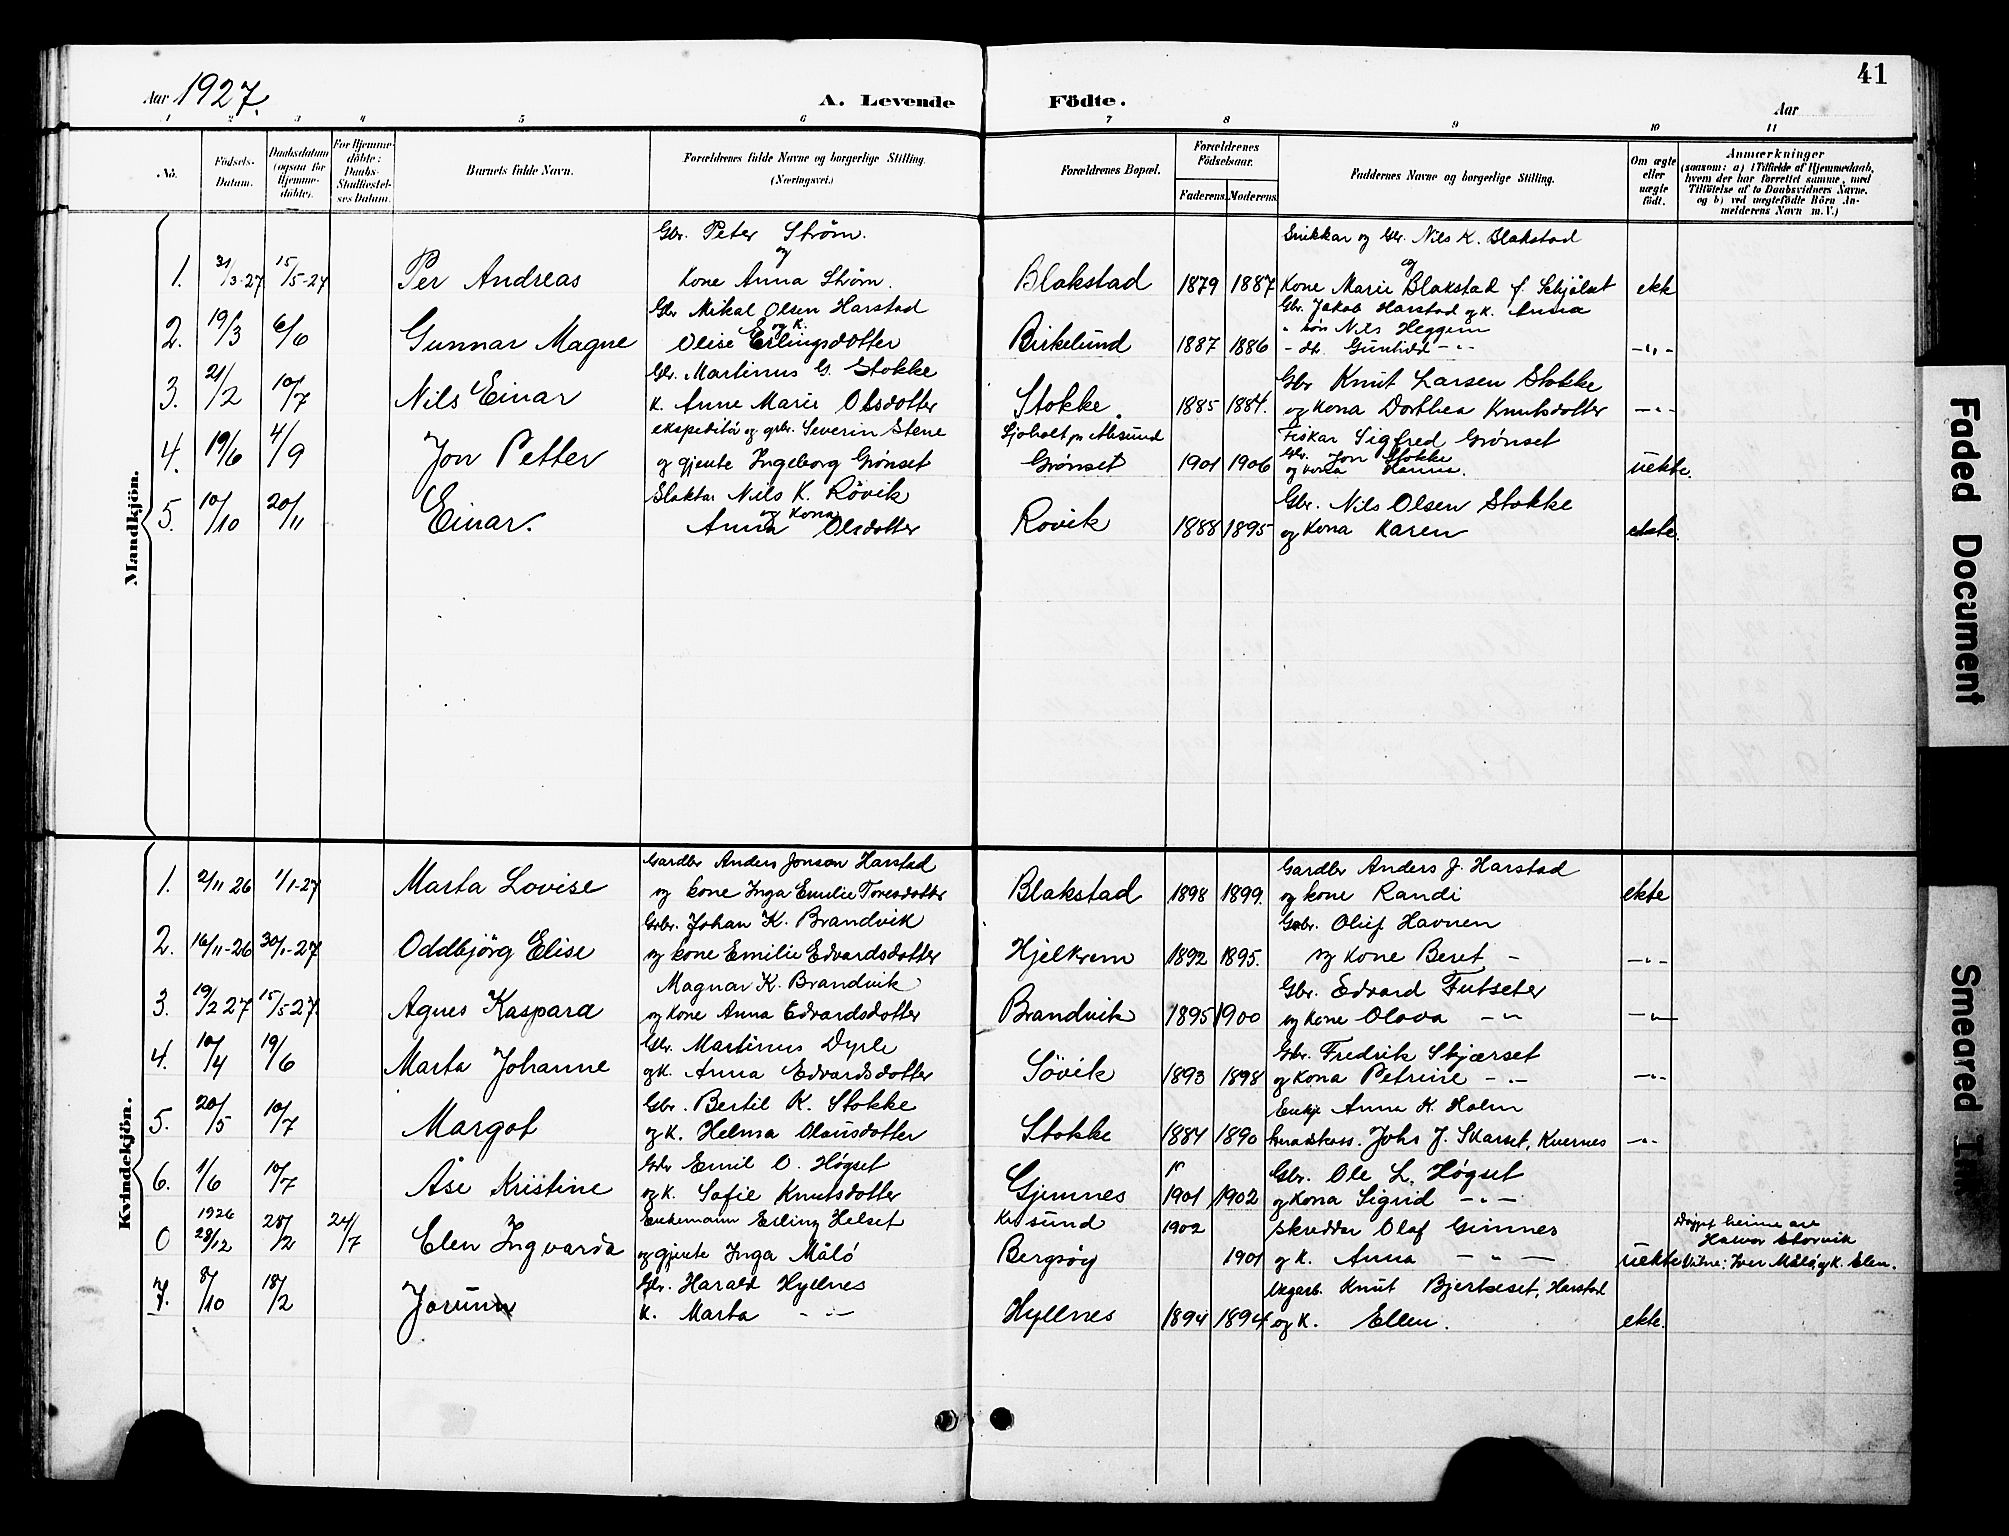 41
Aar 1927.
A. Levende Födte.
Aar
1 2 3 4 5 6 7 8 9 10 11
No.
Födsels-Datum.
Daabsdatum (ogsaa for Hjemme-döbte).
For Hjemme-döbte: Daabs-Stadfæstel-ses Datum.
Barnets fulde Navn.
Forældrenes fulde Navne og borgerlige Stilling. (Næringsvei.)
Forældrenes Bopæl.
Forældrenes Födselsaar.
Faderens. Moderens.
Faddernes Navne og borgerlige Stilling.
Om ægte eller uægte födt.
Anmærkninger (saasom: a) i Tilfælde af Hjemmedaab, hvem der har forrettet samme, med Tilföielse af to Daabsvidners Navne, og b) ved uægtefödte Börn An-melderens Navn m. V.)
Mandkjön.
Gbr. Peter Strøm. Snikkar og Gbr. Nils K. Blakstad
og og
1. 31/3-27 15/5-27 Per Andreas Kone Anna Strøm. Blakstad 1879 1887 Kone Marie Blakstad f. ekk
Gbr Mikal Olsen Harstad Gbr. Jakob Harstad og k. Anna
og k. Nils Heggem
2. 19/3 6/6 Gunnar Magne Olise Erlingsdotter Birkelund 1887 1886 - dt. Gunhild -"- -"-
Gbr. Martinus G. Stokke Gbr Knut Larsen Stokke
3. 21/2 10/7 Nils Einar K. Anne Marie Olsdotter Stokke. 1885 1884. og Kona Dorthea Knutsdotter -"-
ekspeditör og gbr. Severin Stene Sjoholt pr Aalesund Fiskar Sigfred Grønset
Gbr. Jon Stokke
4. 19/6 4/9 Jon Petter og gjente Ingeborg Grönset Grønset 1901 1906 og kona Hanna. uekte.
Slaktar Nils K. Rövik Gbr. Nils Olsen Stokke
og Kona
5. 10/10 20/11 Einar. Anna Olsdotter Rovik 1888 1895 og Kona Karen ekte.
Kvindekjön.
Gardbr Anders Jonson Harstad Gardbr Anders J. Harstad
1. 2/11 26 1/1-27 Marta Lovise og kone Inga Emilie Toresdotter Blakstad 1898 1899. og kone Randi ekte
Gbr. Johan K. Brandvik Gbr. Oluf Havnen
2. 16/11-26 30/1-27 Oddbjörg Elise og kone Emilie Edvardsdotter Hjelkrem 1892 1895. og Kone Beret - -"-
Magnar K. Brandvik Gbr. Edvard Futseter
3. 19/2 27 15/5-27. Agnes Kaspara og Kone Anna Edvardsdotter Brandvik 1895 1900 og Kone Olava -"- -"-
Gbr. Martinus Dyrli Gbr. Fredrik Skjærset
4. 10/4 19/6 Marta Johanne og K. Anna Edvardsdotter Sövik 1893 1898 og Kona Petrine -"- -"-
Gbr. Bertil K. Stokke Enkje Anna K. Holm
5. 20/5 10/7 Margot og K. Helma Olausdotter Stokke 1884 1890 Johs J. Skarset, Kvernes -"-
Gbr Emil O. Høgset Gbr. Ole L. Høgset
6. 1/6 10/7 Åse Kristine og K. Sofie Knutsdotter Gjemnes 1901 1902 og Kona Sigrid -"-
1926 Enkemann Erling Helset Kr sund 1902 skreddar Olaf Gimnes Døypt heime av Halvor Storvik
0 28/12 28/2 24/7 Elen Ingvarda og gjente Inga Målö Bergsöy 1901 og K. Anna -"- uekte Vitne: Iver Målö og K. Elen.
Gbr. Harald Hyllnes Knut Bjerkeset, Harstad
7. 8/10 18/2 Jorunn K. Marta -"- Hyllnes 1894 1894 og K. Ellen. ekte.
Faded Document
Smeared Ink